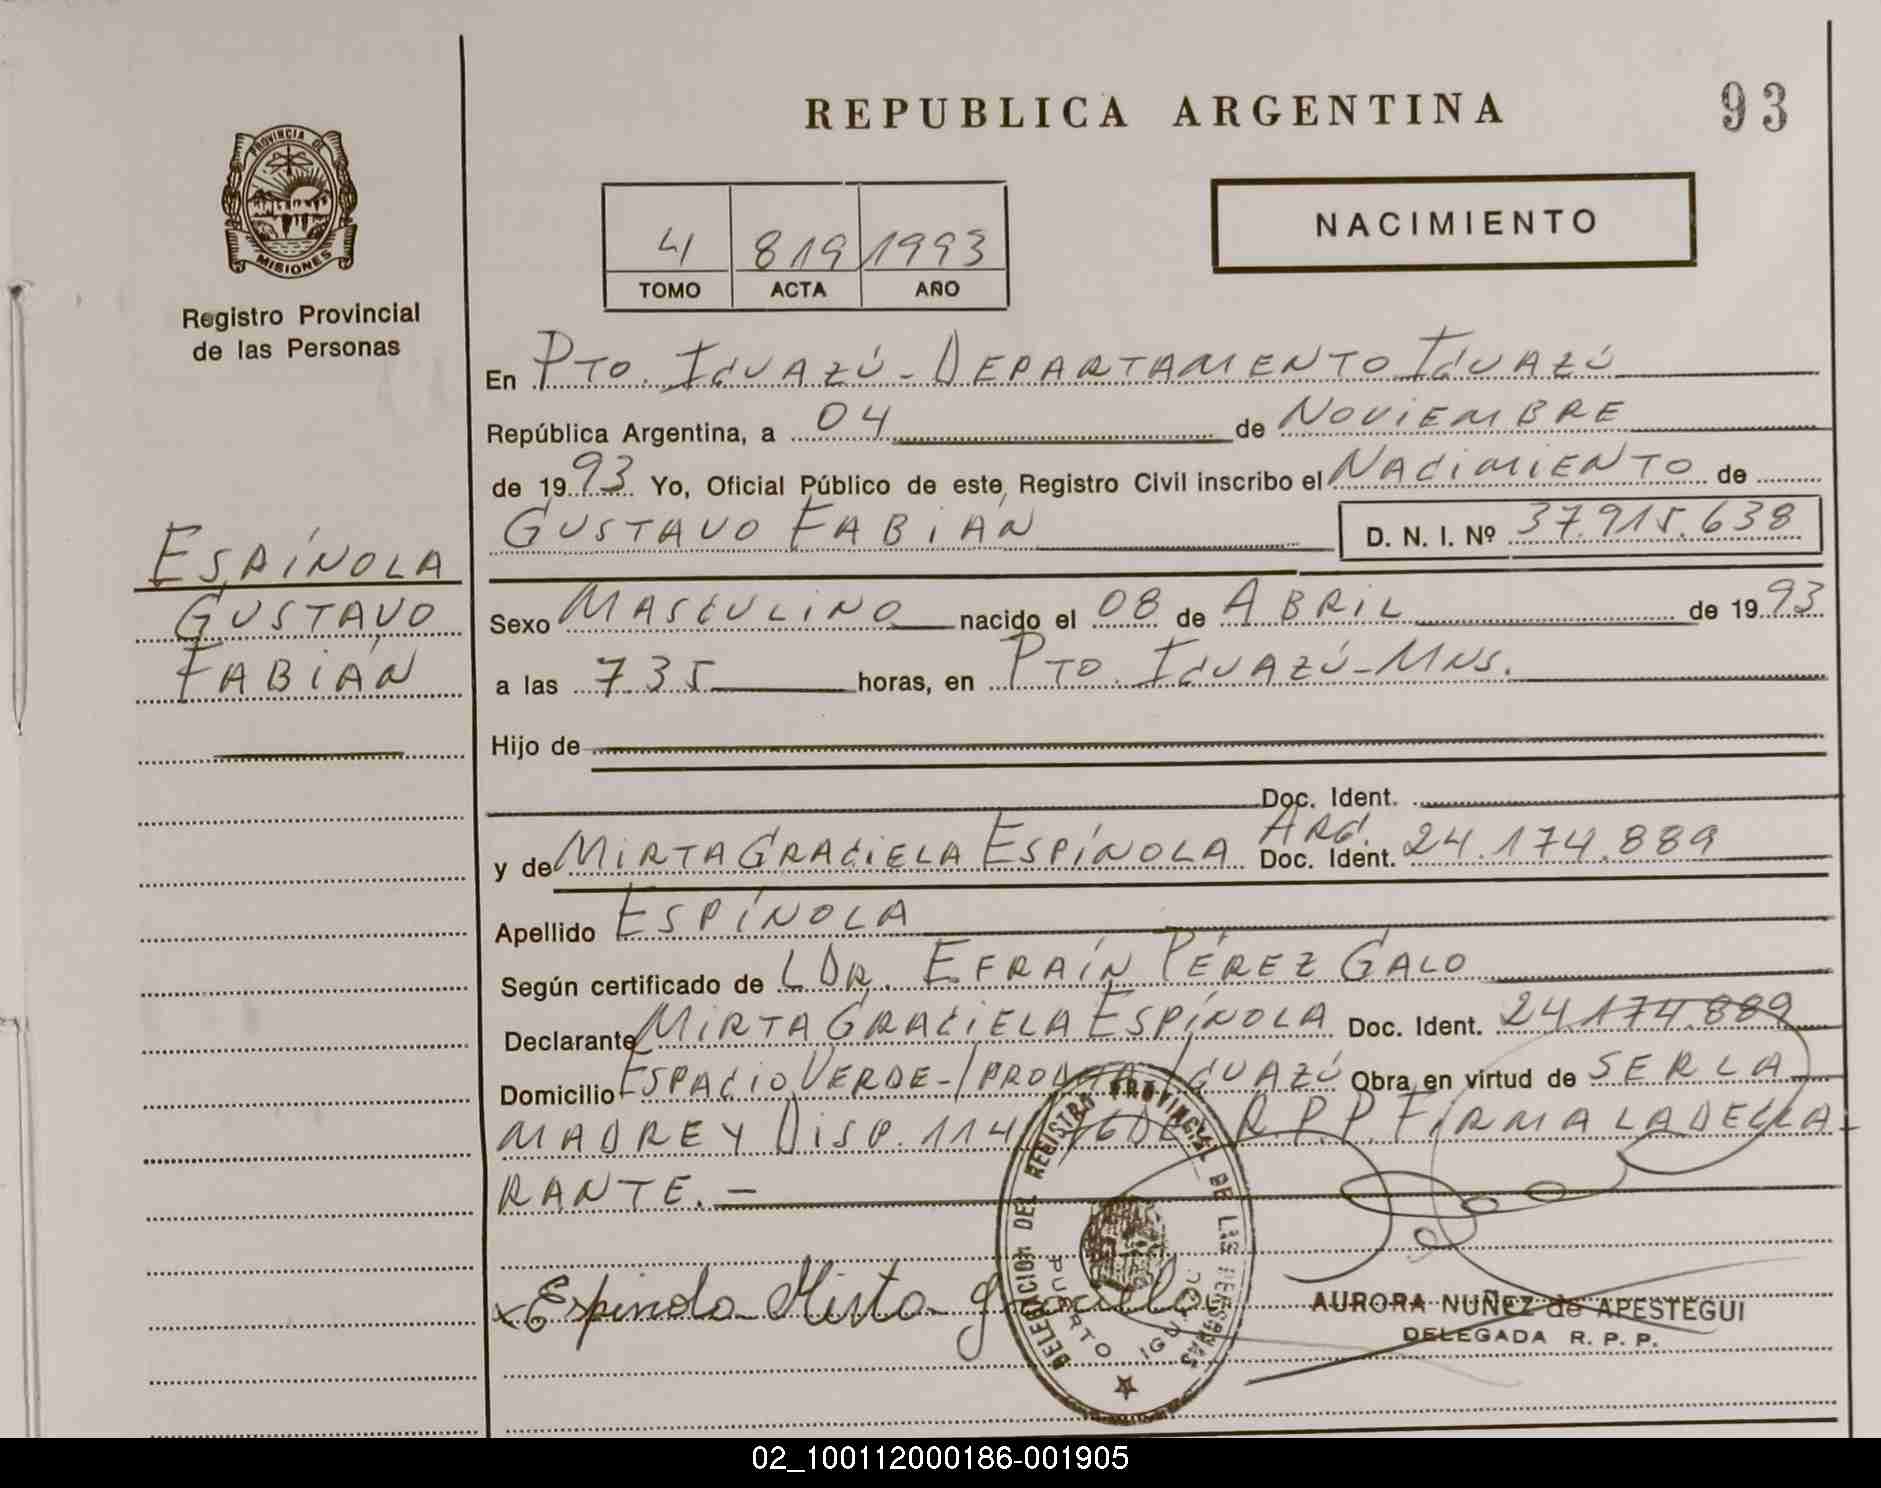 REPUBLICA ARGENTINA
93
PROVINCIA DE
MISIONES
Registro Provincial
de las Personas
NACIMIENTO
4 819 1993
TOMO ACTA AÑO
En PTO. IGUAZÚ - DEPARTAMENTO IGUAZÚ
República Argentina, a 04 de NOVIEMBRE
de 1993 Yo, Oficial Público de este Registro Civil inscribo el NACIMIENTO de
GUSTAVO FABIÁN D. N. I. Nº 37.915.638
ESPÍNOLA
GUSTAVO
FABIÁN
Sexo MASCULINO nacido el 08 de ABRIL de 1993
a las 735 horas, en PTO. IGUAZÚ - MNS.
Hijo de
Doc. Ident.
y de MIRTA GRACIELA ESPÍNOLA ARG. Doc. Ident. 24.174.889
Apellido ESPÍNOLA
Según certificado de LDR. EFRAÍN PÉREZ GALO
Declarante MIRTA GRACIELA ESPÍNOLA Doc. Ident. 24.174.889
Domicilio ESPACIO VERDE - IPRODHA IGUAZÚ Obra en virtud de SER LA
MADRE Y DISP. 114 R.P.P. FIRMA LA DECLA-
RANTE. -
x Espinola Mirta Graciela
DELEGACION DEL REGISTRO PROVINCIAL DE LAS PERSONAS
PUERTO IGUAZU
AURORA NUÑEZ de APESTEGUI
DELEGADA R. P. P.
02_100112000186-001905